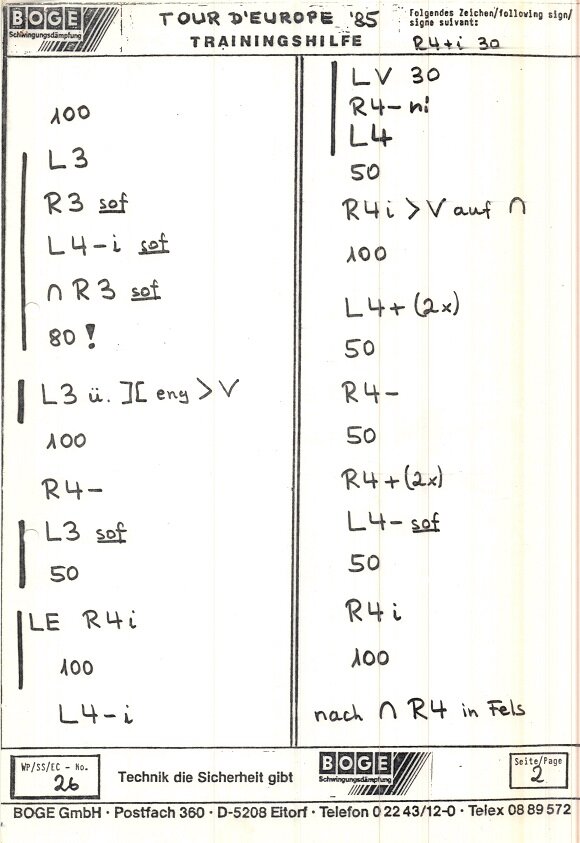 BOGE
Schwingungsdämpfung
TOUR D'EUROPE '85
TRAININGSHILFE
Folgendes Zeichen/following sign/
signe suivant:
R4+i 30
100
L3
R3 sof
L4-i sof
∩ R3 sof
80 !
L3 ü. ][ eng > V
100
R4-
L3 sof
50
LE R4i
100
L4-i
LV 30
R4- ni
L4
50
R4i > V auf ∩
100
L4+ (2x)
50
R4-
50
R4+ (2x)
L4- sof
50
R4i
100
nach ∩ R4 in Fels
WP/SS/EC - No.
26
Technik die Sicherheit gibt
BOGE
Schwingungsdämpfung
Seite/Page
2
BOGE GmbH · Postfach 360 · D-5208 Eitorf · Telefon 0 22 43/12-0 · Telex 08 89 572